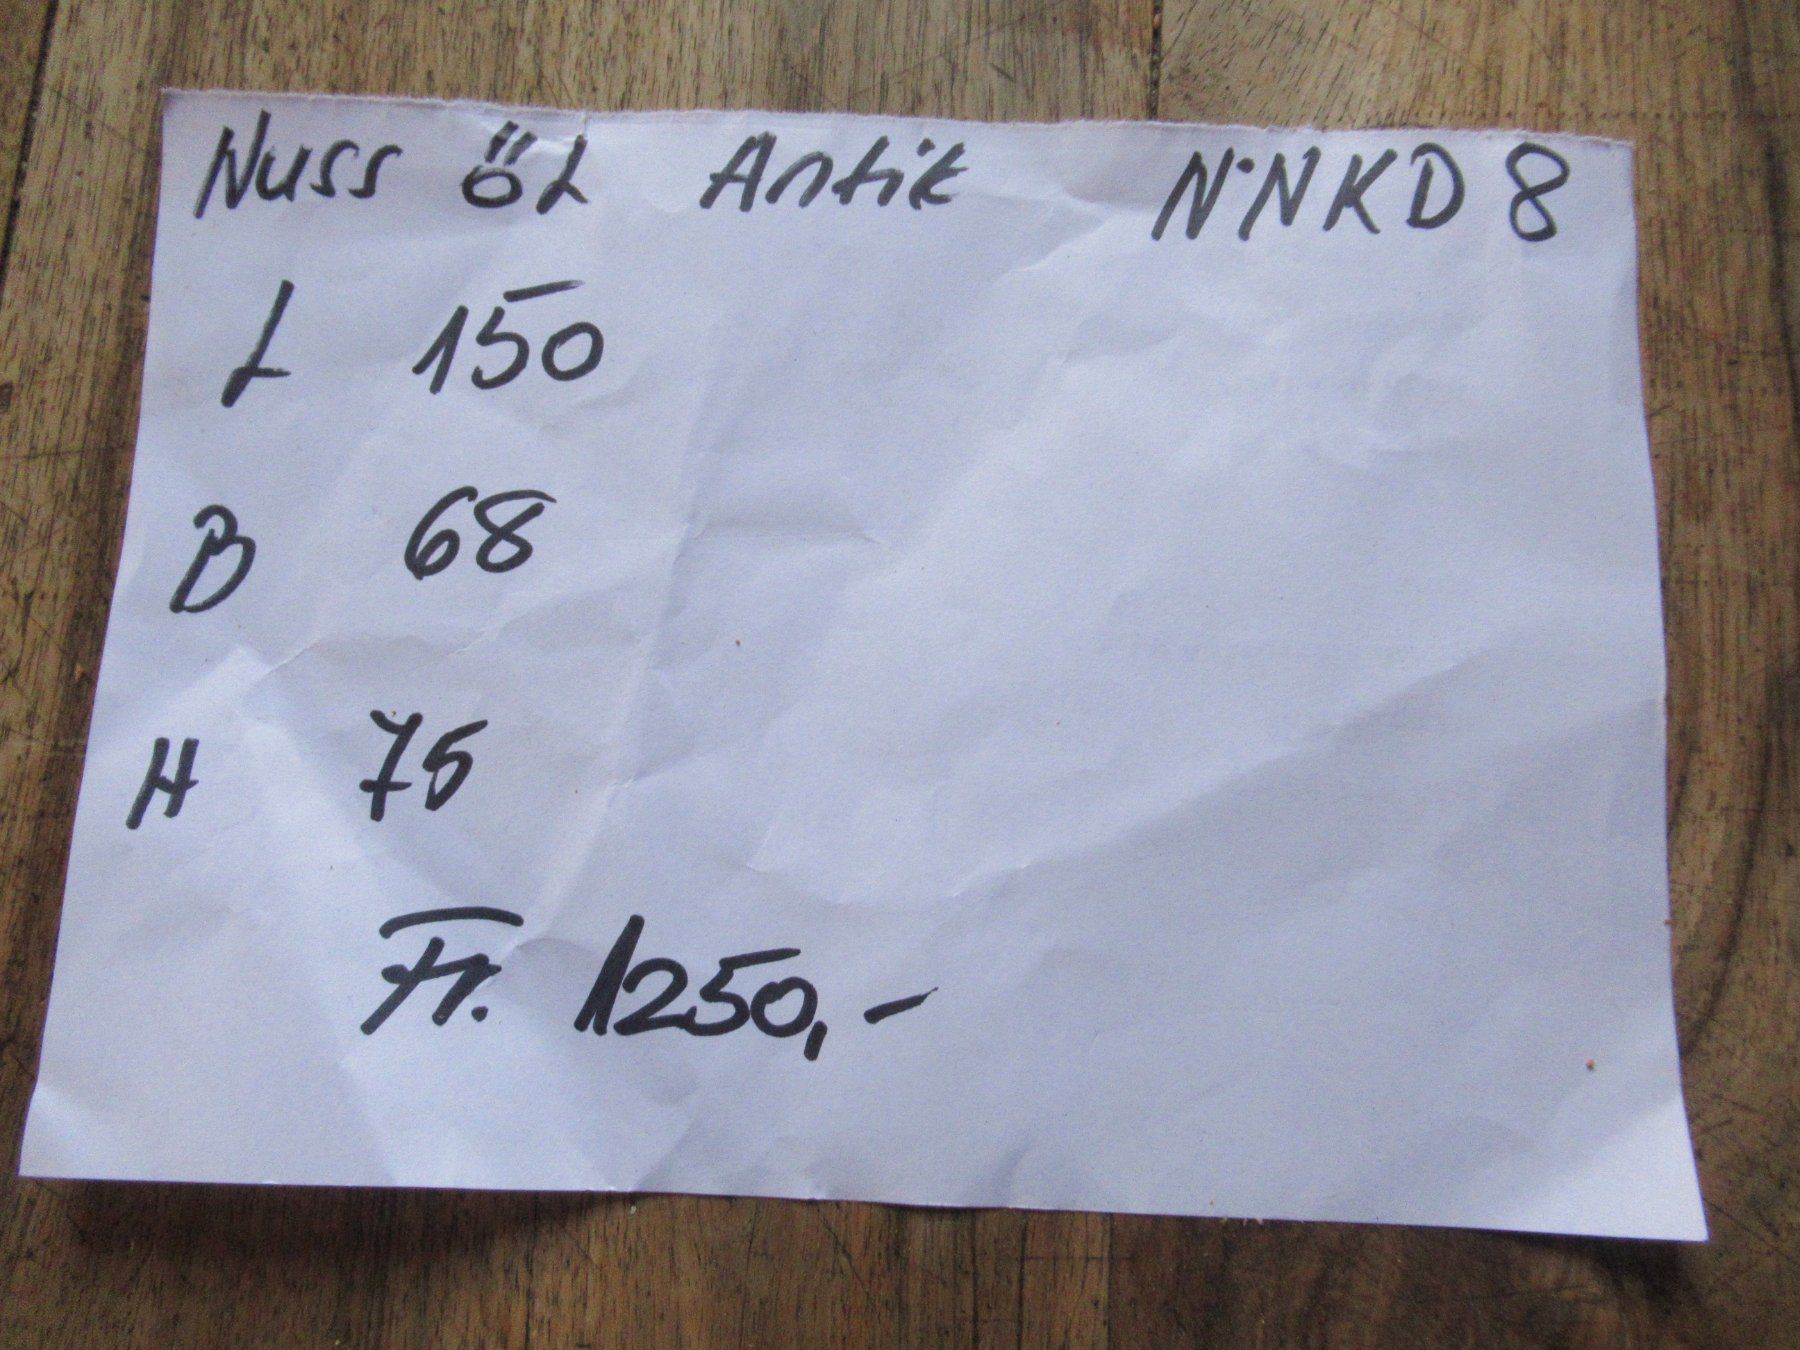 Nuss öL Antik N·NKD 8
L 150
B 68
H 75
Fr. 1250,-